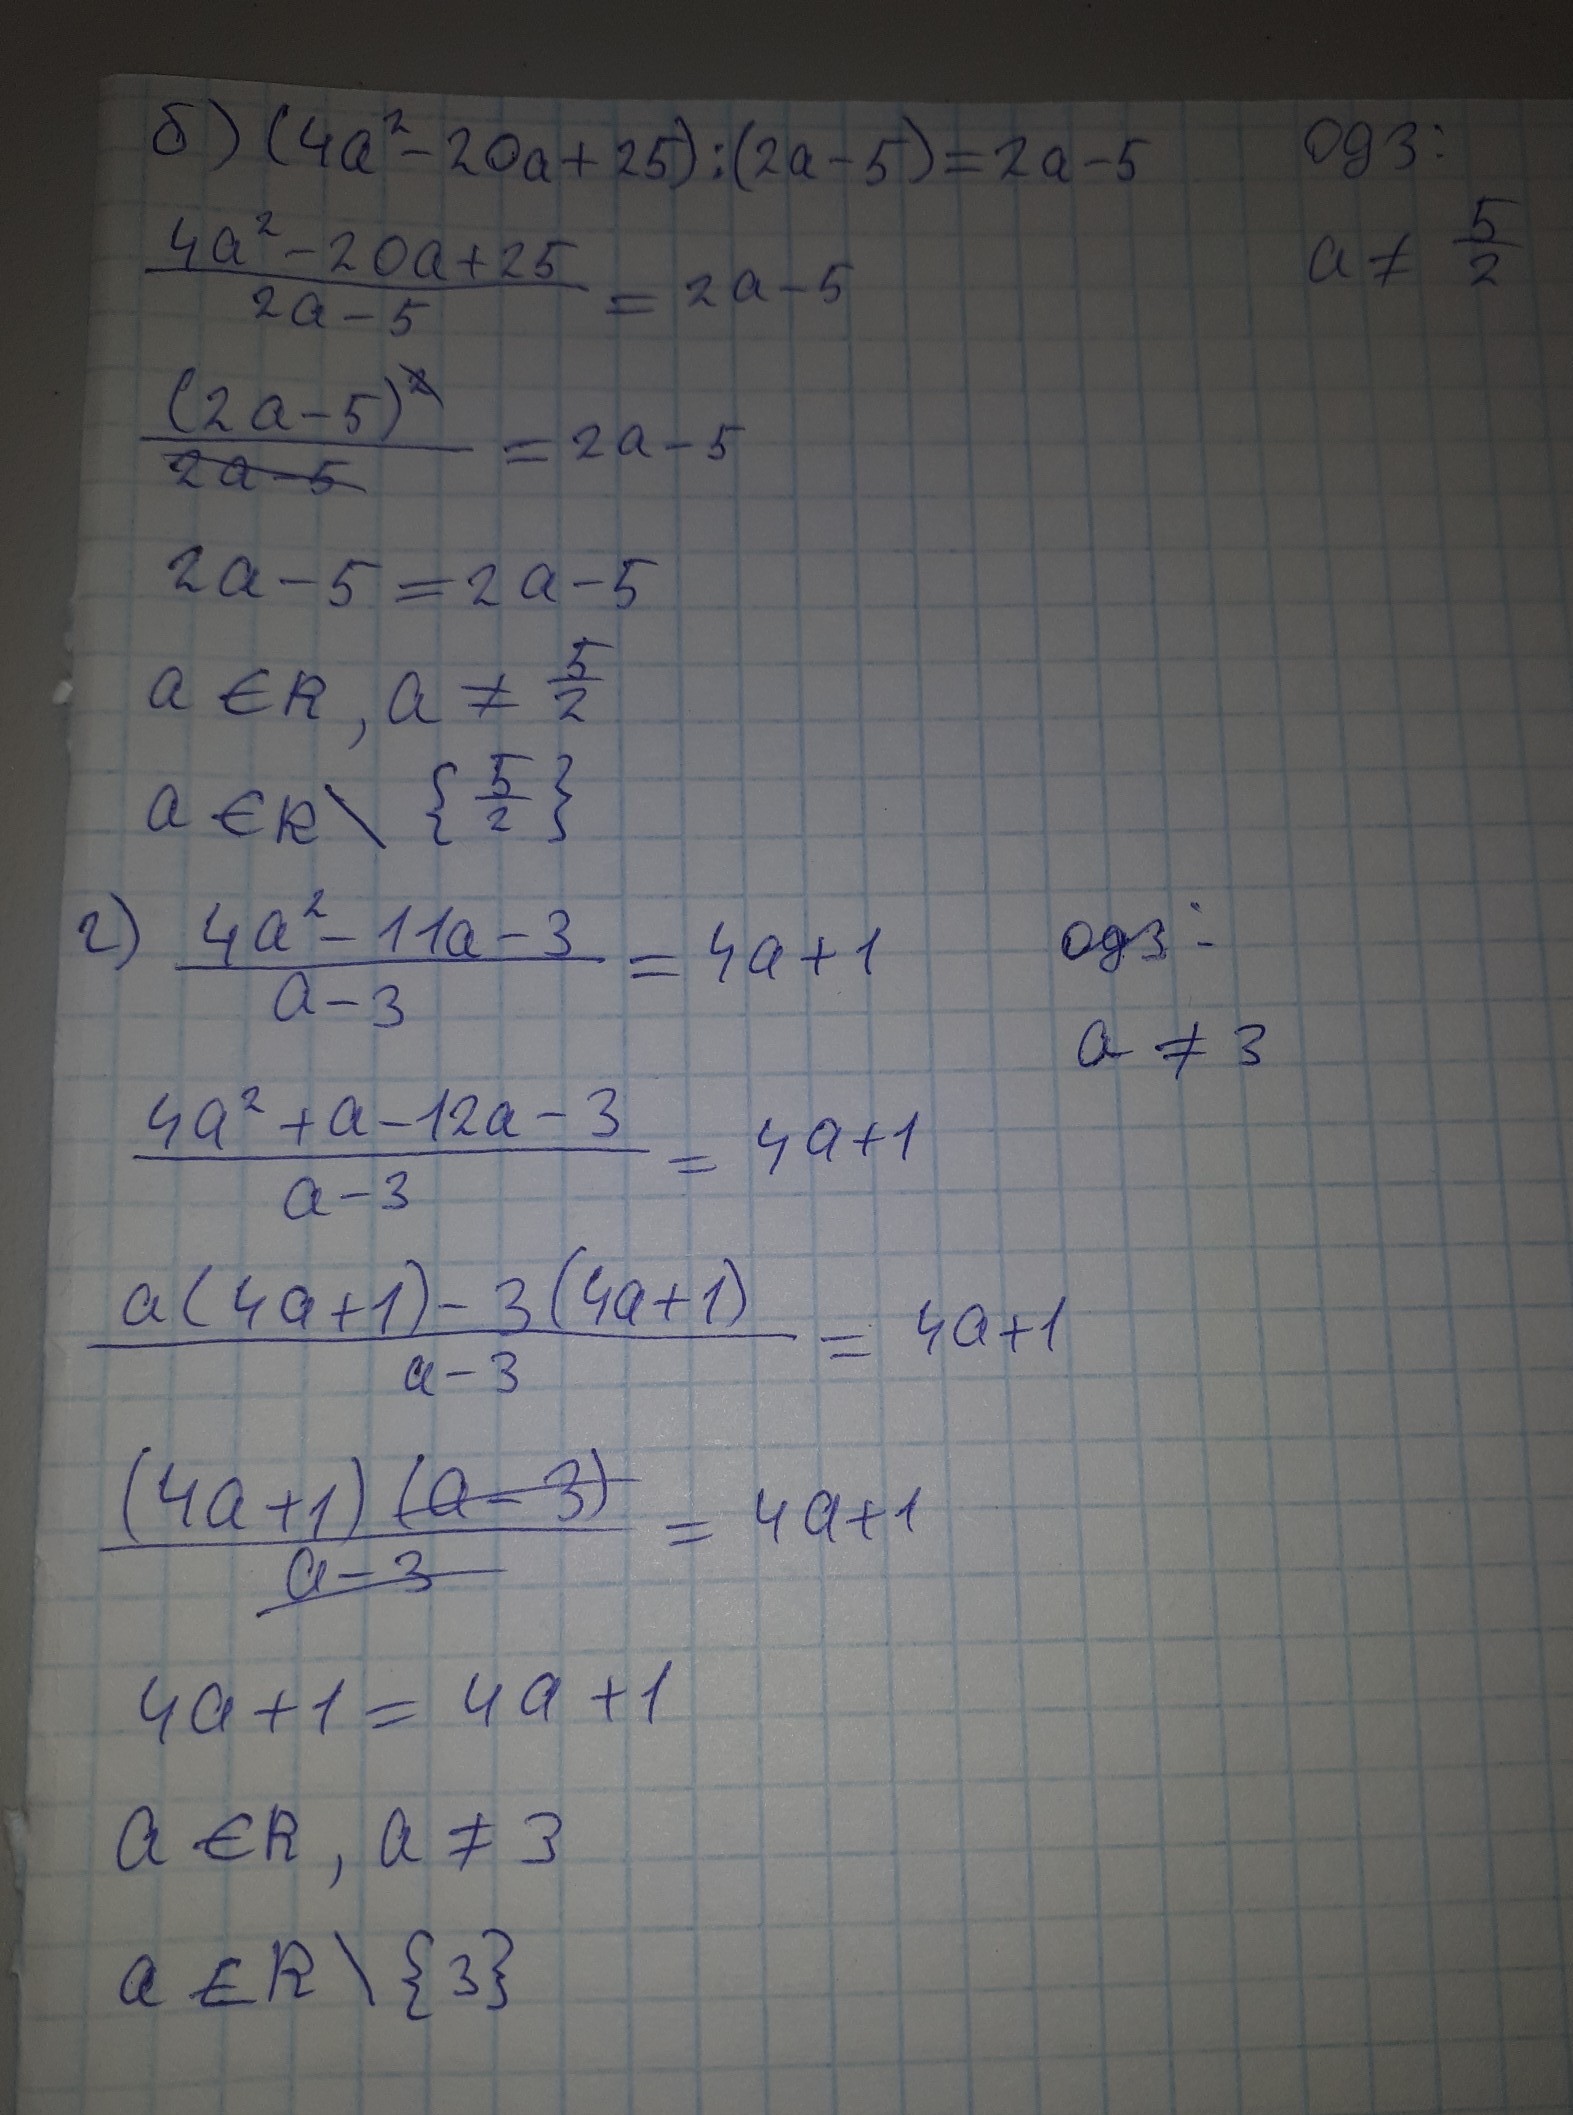 б) (4a² - 20a + 25) : (2a - 5) = 2a - 5 ОДЗ:
(4a² - 20a + 25)/(2a - 5) = 2a - 5 a ≠ 5/2
(2a - 5)²/(2a - 5) = 2a - 5
2a - 5 = 2a - 5
a ∈ R, a ≠ 5/2
a ∈ R \ {5/2}
г) (4a² - 11a - 3)/(a - 3) = 4a + 1 ОДЗ:
a ≠ 3
(4a² + a - 12a - 3)/(a - 3) = 4a + 1
(a(4a + 1) - 3(4a + 1))/(a - 3) = 4a + 1
((4a + 1)(a - 3))/(a - 3) = 4a + 1
4a + 1 = 4a + 1
a ∈ R, a ≠ 3
a ∈ R \ {3}